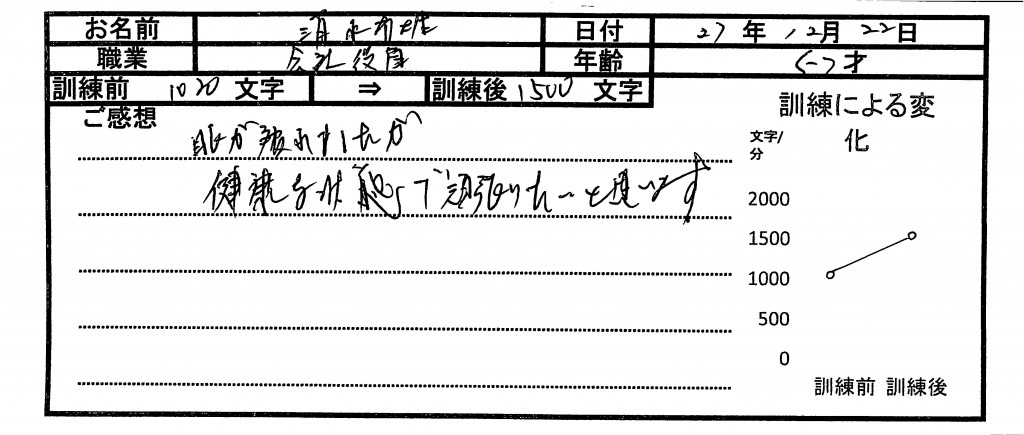 お名前 清水 日付 27年12月22日
職業 会社役員 年齢 才
訓練前 1020 文字 ⇒ 訓練後 1500 文字
ご感想
眼が疲れましたが
健康な状態で頑張りたいと思います
訓練による変化
文字/分
2000
1500
1000
500
0
訓練前 訓練後